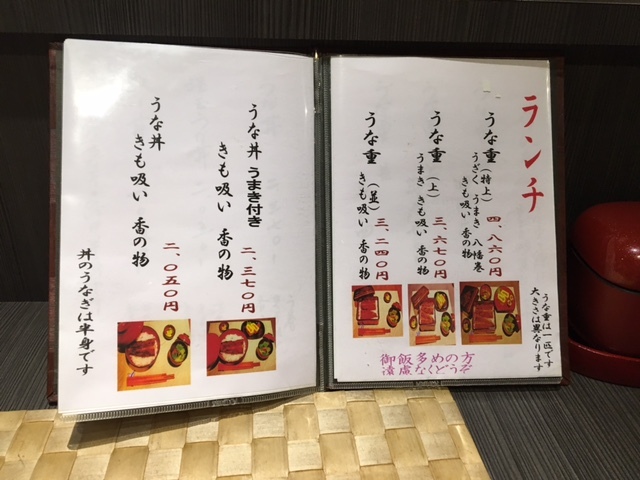 ランチ
うな重（特上）
うざく うまき 八幡巻
きも吸い 香の物
四、八六〇円
うな重（上）
うまき きも吸い 香の物
三、六七〇円
うな重（並）
きも吸い 香の物
三、二四〇円
うな重は一匹です
大きさは異なります
御飯多めの方
遠慮なくどうぞ
うな丼 うまき付き
きも吸い 香の物
二、三七〇円
うな丼
きも吸い 香の物
二、〇五〇円
丼のうなぎは半身です